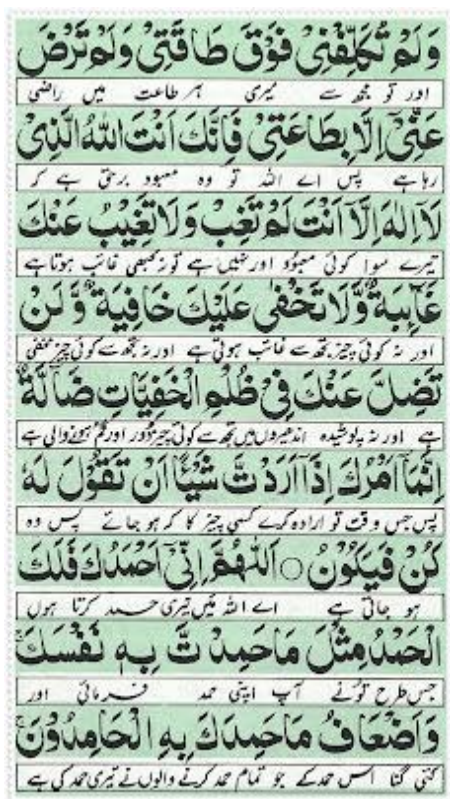 وَلَمْ تُكَلِّفْنِيْ فَوْقَ طَاقَتِيْ وَلَمْ تَرْضَ
اور تو مجھ سے میری ہر طاعت میں راضی
عَنِّيْ اِلَّا بِطَاعَتِيْ فَاِنَّكَ اَنْتَ اللّٰهُ الَّذِيْ
رہا ہے پس اے اللہ تو وہ معبود برحق ہے کہ
لَآ اِلٰهَ اِلَّا اَنْتَ لَمْ تَغِبْ وَلَا تَغِيْبُ عَنْكَ
تیرے سوا کوئی معبود اور نہیں ہے تو نہ کبھی غائب ہوتا ہے
غَآئِبَةٌ وَّلَا تَخْفٰى عَلَيْكَ خَافِيَةٌ وَّلَنْ
اور نہ کوئی چیز تجھ سے غائب ہوتی ہے اور نہ تجھ سے کوئی چیز مخفی
تَضِلَّ عَنْكَ فِيْ ظُلَمِ الْخَفِيَّاتِ ضَآلَّةٌ
ہے اور نہ پوشیدہ اندھیروں میں تجھ سے کوئی چیز دور اور گم ہونے والی ہے
اِنَّمَآ اَمْرُكَ اِذَآ اَرَدْتَّ شَيْئًا اَنْ تَقُوْلَ لَهٗ
پس جس وقت تو ارادہ کرے کسی چیز کا کہ ہو جائے پس وہ
كُنْ فَيَكُوْنُ ○ اَللّٰهُمَّ اِنِّيْٓ اَحْمَدُكَ فَلَكَ
ہو جاتی ہے اے اللہ میں تیری حمد کرتا ہوں
الْحَمْدُ مِثْلَ مَا حَمِدْتَّ بِهٖ نَفْسَكَ
جس طرح تو نے آپ اپنی حمد فرمائی اور
وَاَضْعَافَ مَا حَمِدَكَ بِهِ الْحَامِدُوْنَ
کئی گنا اس حمد کے جو تمام حمد کرنے والوں نے تیری حمد کی ہے